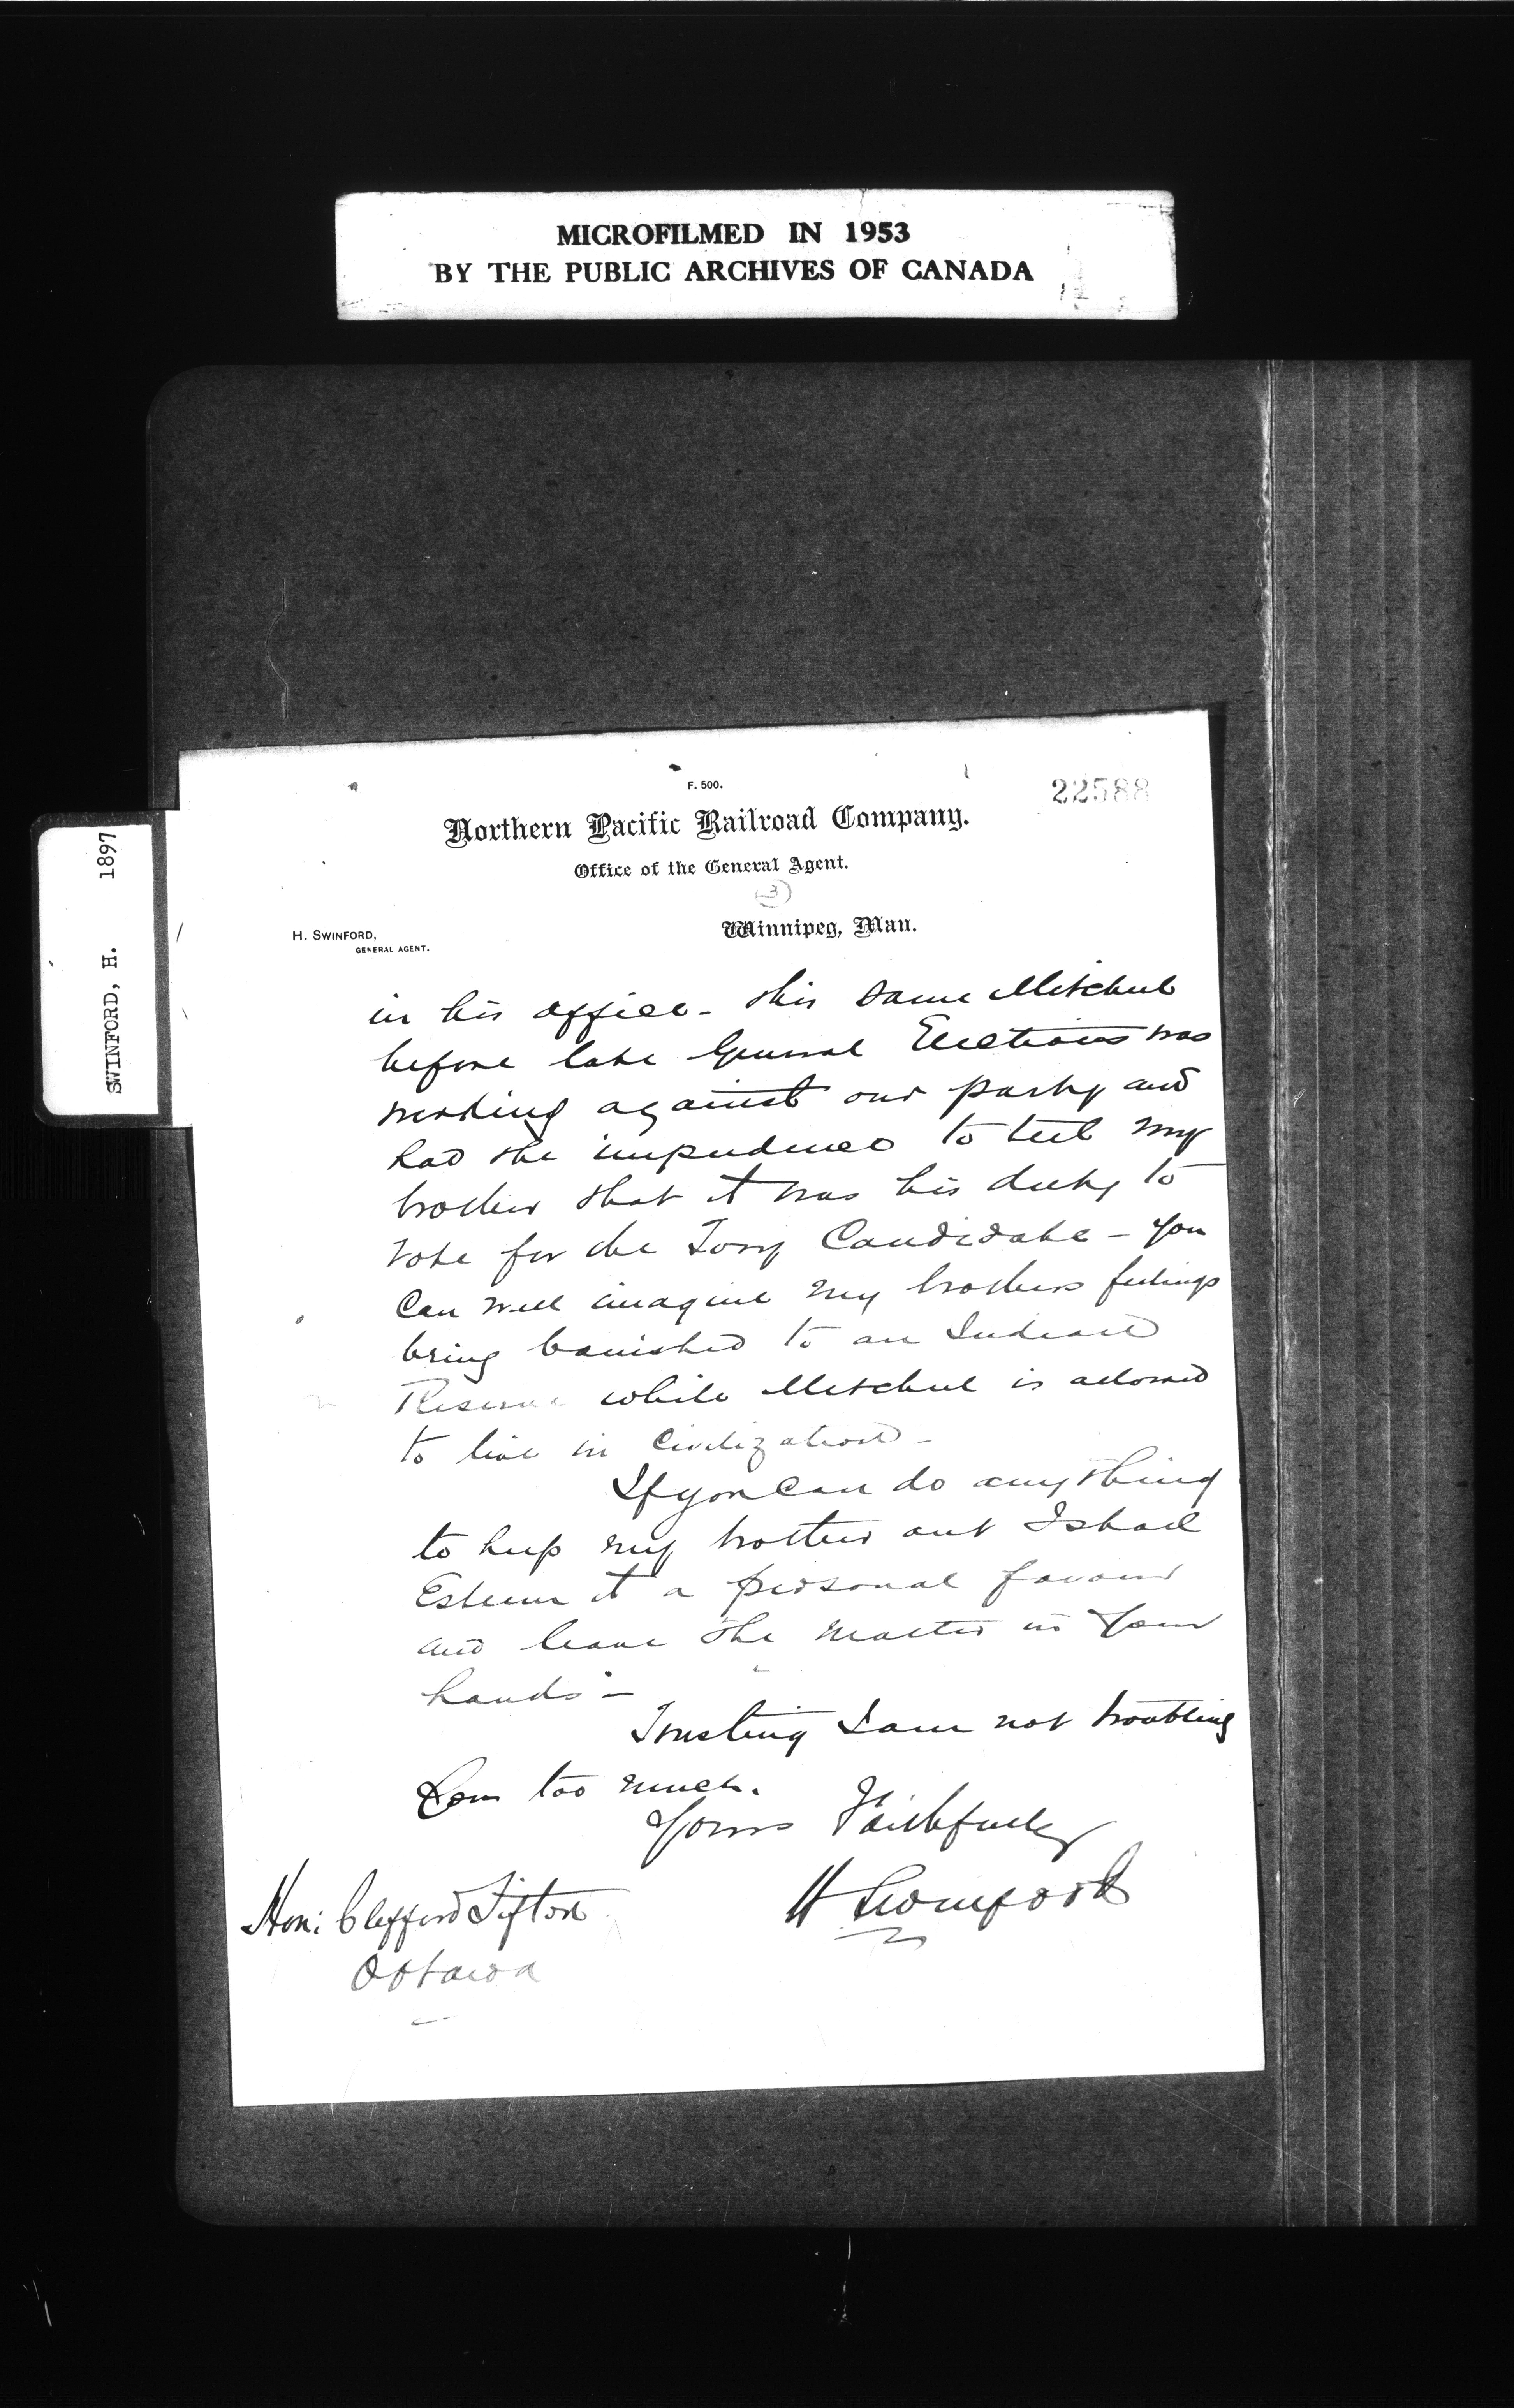 MICROFILMED IN 1953
BY THE PUBLIC ARCHIVES OF CANADA
SWINFORD, H. 1897
F. 500.
22588
Northern Pacific Railroad Company.
Office of the General Agent.
(3)
H. SWINFORD,
GENERAL AGENT.
Winnipeg, Man.
in his office - this same Mitchel
before late General Elections was
working against our party and
had the impudence to tell my
brother that it was his duty to
vote for the Tory Candidate - you
can well imagine my brothers feelings
being banished to an Indian
Reserve while Mitchel is allowed
to live in Civilization -
If you can do anything
to help my brother out I shall
Esteem it a personal favour
and leave the matter in your
hands -
Trusting I am not troubling
you too much.
Yours Faithfully
H Swinford
Hon: Clifford Sifton
Ottawa